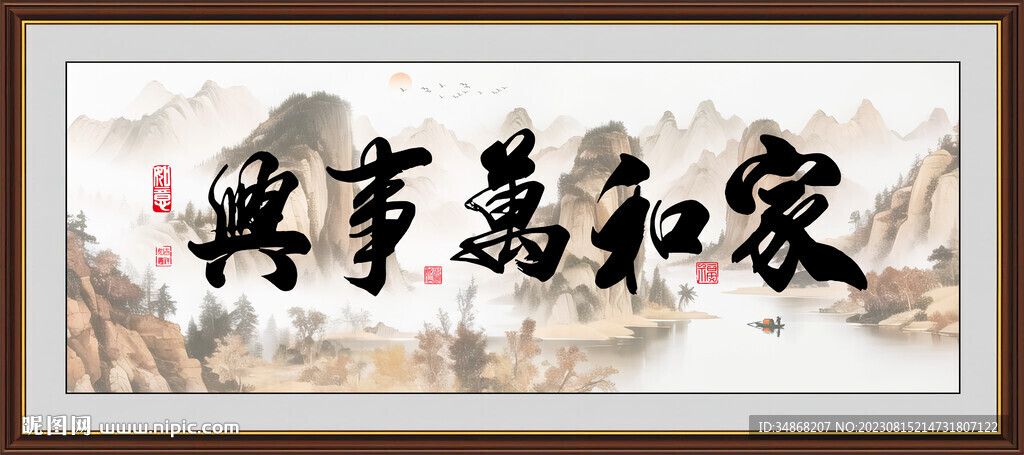 家和萬事興
如意
昵图网 www.nipic.com
ID:34868207 NO:20230815214731807122